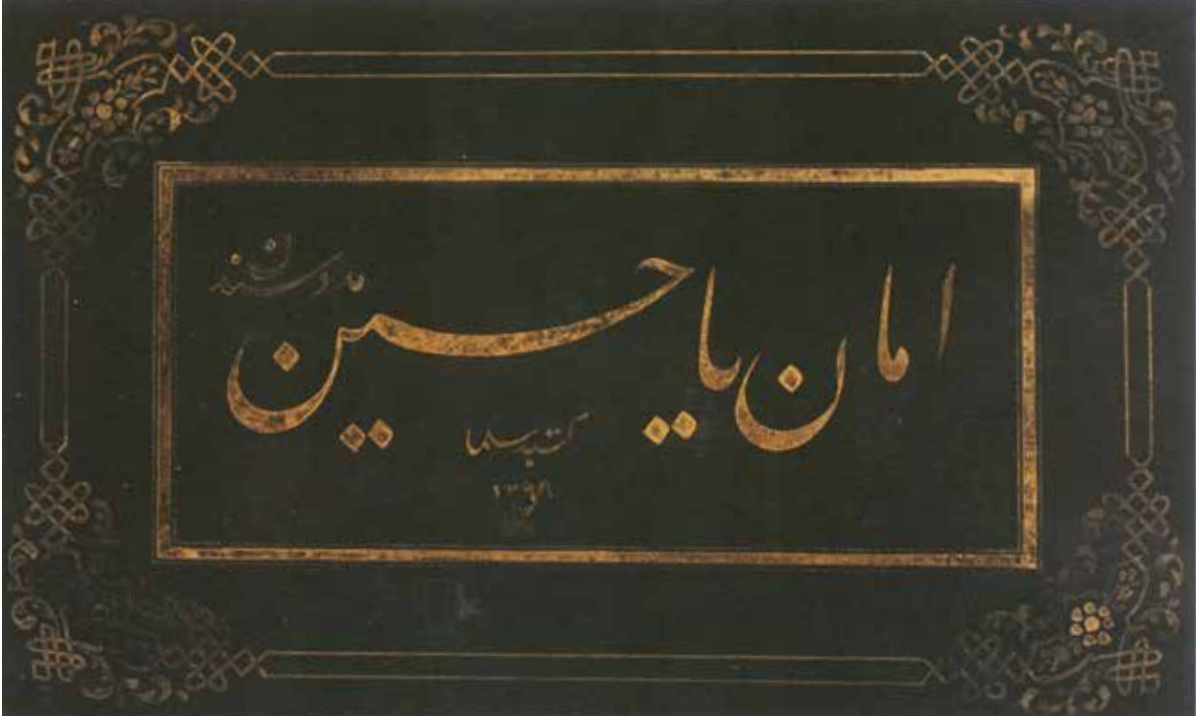 امان یا حسین
کتبه سلما